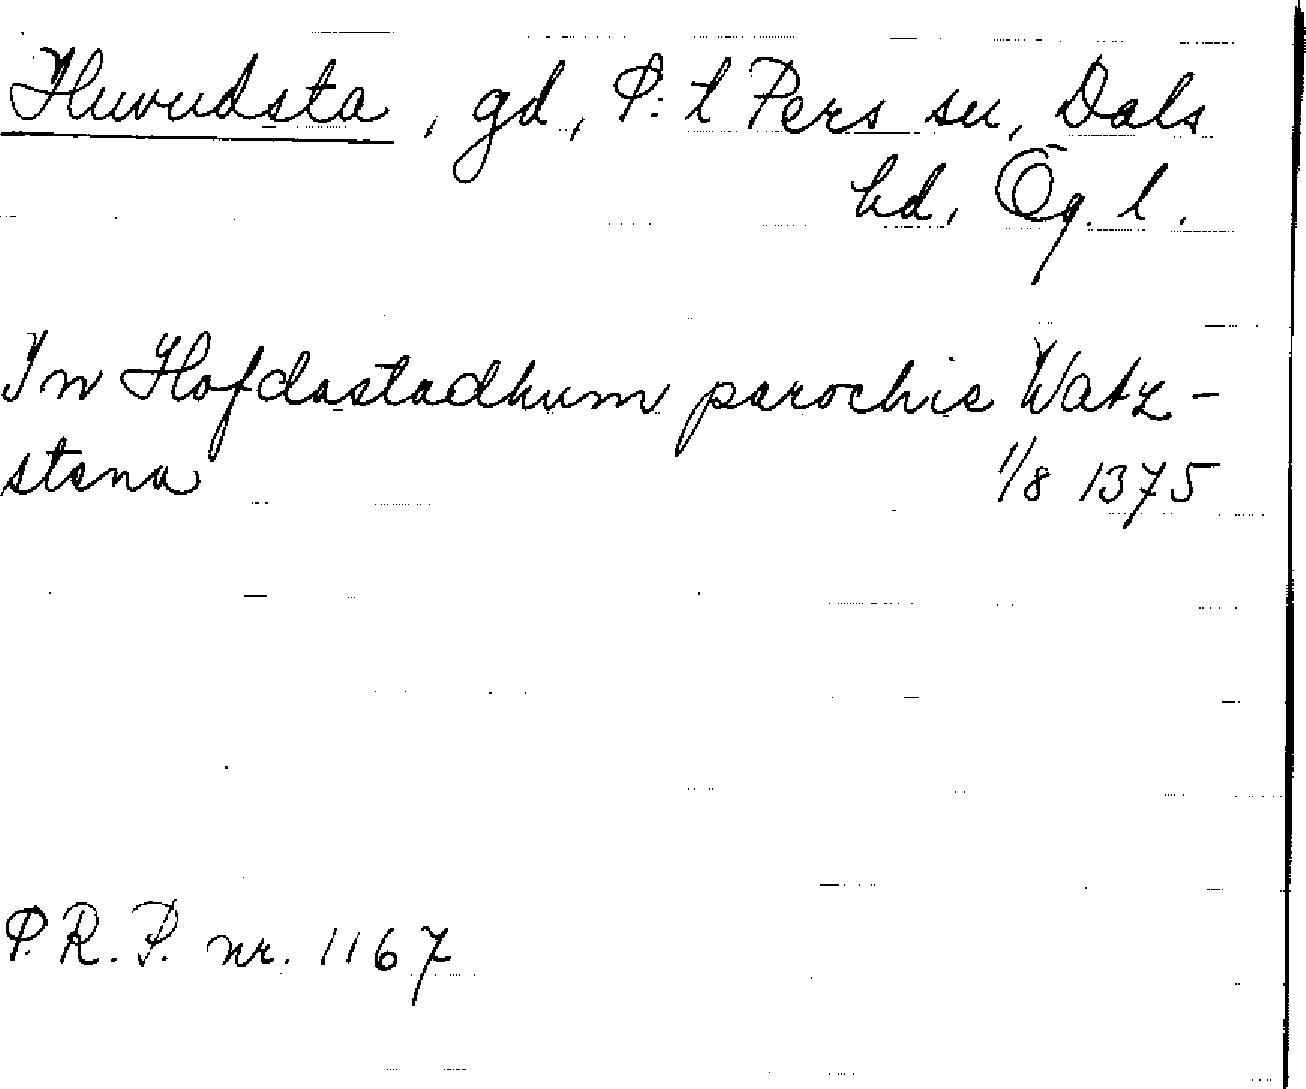 Huvudsta, gd, P:t Pers sn, Dals
hd, Ög. l.
In Hofdastadhum parochia Watz-
stena 1/8 1375
P.R.P. nr. 1167